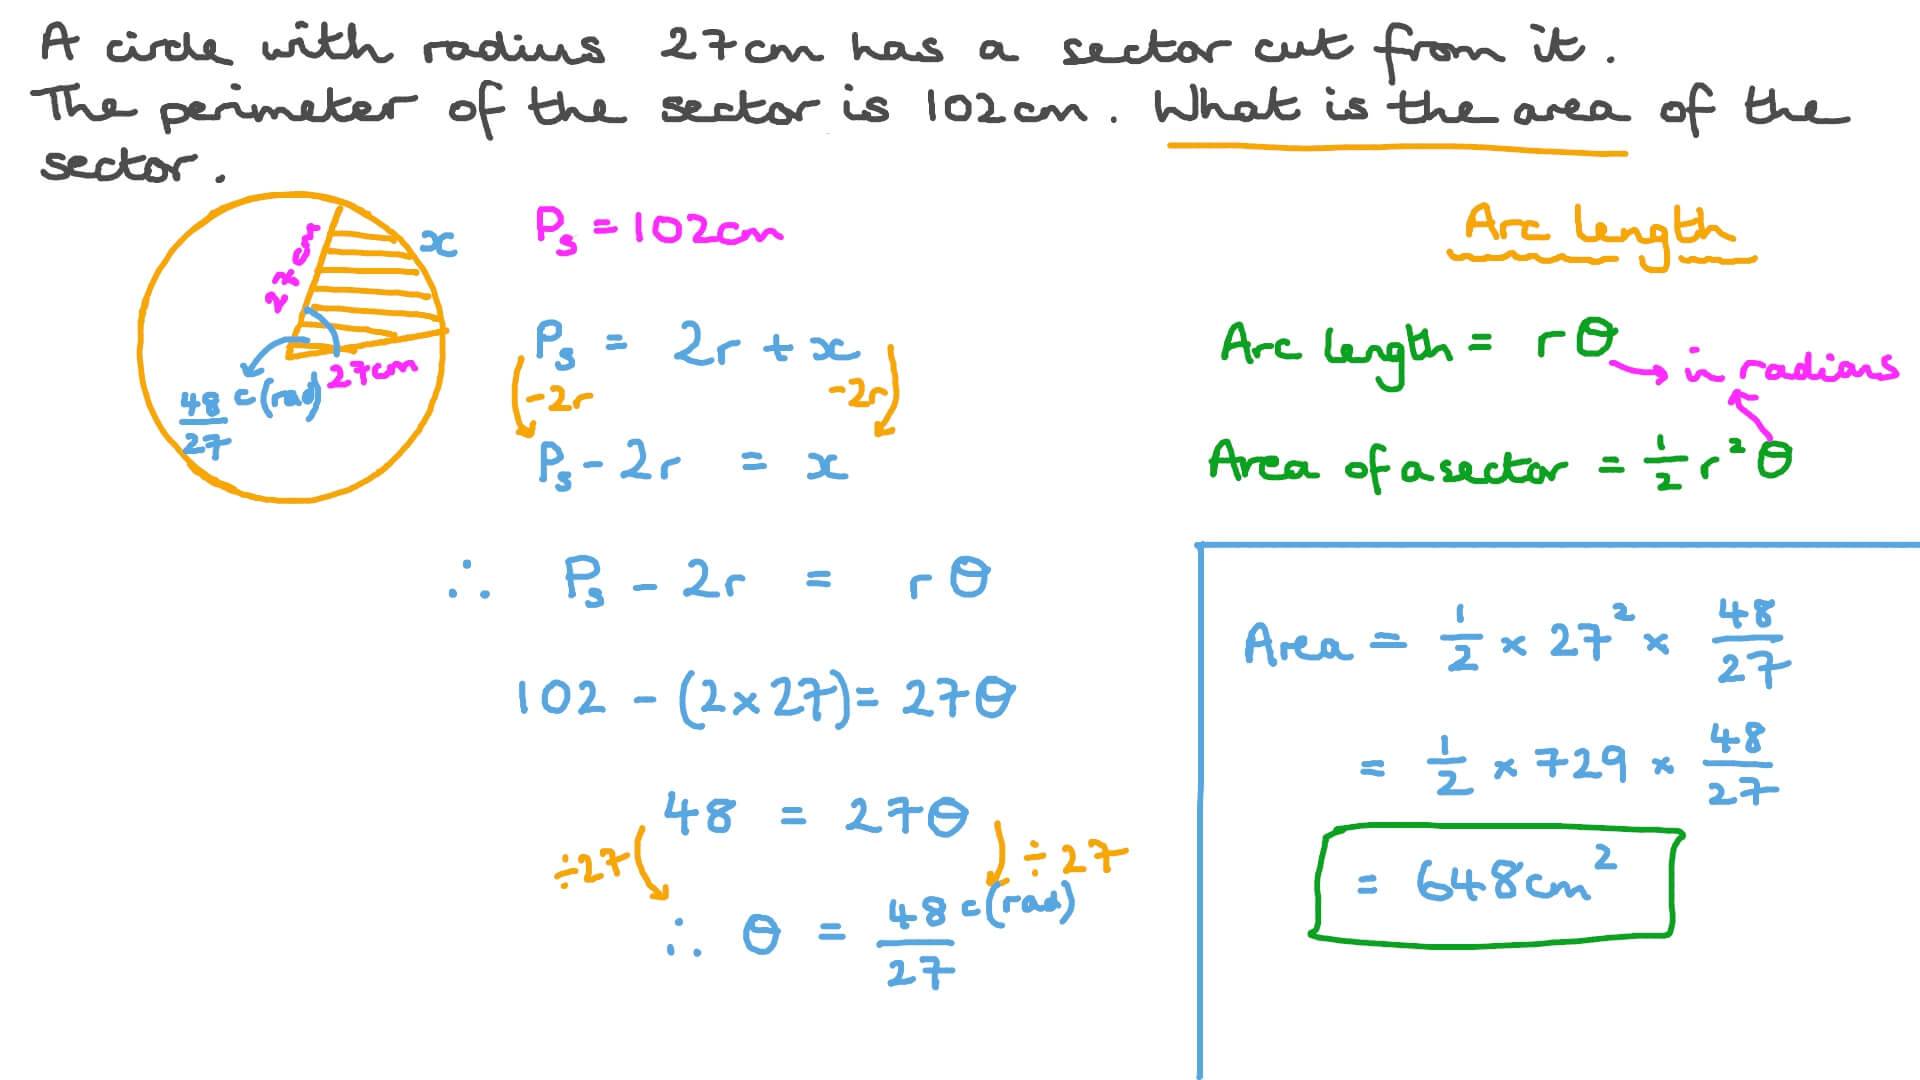 A circle with radius 27cm has a sector cut from it.
The perimeter of the sector is 102cm. What is the area of the
sector.
27cm
x
27cm
48/27 c(rad)
Ps = 102cm
Ps = 2r + x
-2r -2r
Ps - 2r = x
∴ Ps - 2r = rθ
102 - (2×27) = 27θ
48 = 27θ
÷27 ÷27
∴ θ = 48/27 c(rad)
Arc length
Arc length = rθ
in radians
Area of a sector = 1/2 r²θ
Area = 1/2 × 27² × 48/27
= 1/2 × 729 × 48/27
= 648cm²